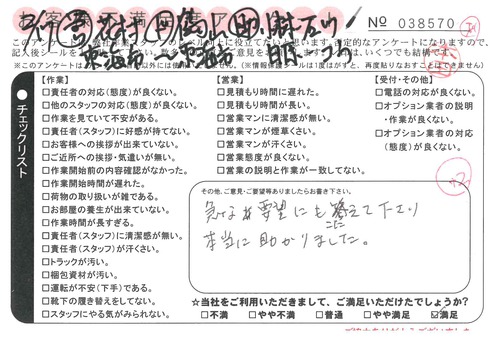 № 038570
このアンケートは
記入後シールを
※このアンケート
【作業】
□責任者の対応(態度)が良くない。
□他のスタッフの対応(態度)が良くない。
□作業を見ていて不安がある。
□責任者(スタッフ)に好感が持てない。
□お客様への挨拶が出来ていない。
□ご近所への挨拶・気遣いが無い。
□作業開始前の内容確認がなかった。
□作業開始時間が遅れた。
□荷物の取り扱いが雑である。
□お部屋の養生が出来ていない。
□作業時間が長すぎる。
□責任者(スタッフ)に清潔感が無い。
□責任者(スタッフ)が汗くさい。
□トラックが汚い。
□梱包資材が汚い。
□運転が不安(下手)である。
□靴下の履き替えをしてない。
□スタッフにやる気がみられない。
【営業】
□見積もり時間に遅れた。
□見積もり時間が長い。
□営業マンに清潔感が無い。
□営業マンが煙草くさい。
□営業マンが汗くさい。
□営業態度が良くない。
□営業の説明と作業が一致してない。
【受付・その他】
□電話の対応が良くない。
□オプション業者の説明
・作業が良くない。
□オプション業者の対応
(態度)が良くない。
チェックリスト
その他、ご意見・ご要望等ありましたらお書き下さい。
急なお要望にも答えて下さり
本当に助かりました。
☆当社をご利用いただきまして、ご満足いただけたでしょうか?
□不満 □やや不満 □普通 □やや満足 ☑満足